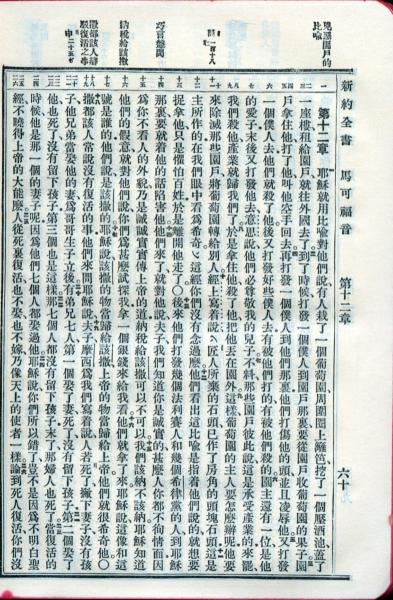 新約全書 馬可福音 第十二章 六十
兇惡園戶的
比喻
第十二章 耶穌就用比喻對他們說有人栽了一個葡萄園周圍圈上籬笆挖了一個壓酒池蓋了
一座樓租給園戶就往外國去了到了時候打發一個僕人到園戶那裏要從園戶收葡萄園的果子園
戶拿住他打了他叫他空手回去再打發一個僕人到他們那裏他們打傷他的頭並且凌辱他又打發
一個僕人去他們就殺了他後又打發好些僕人去有被他們打的有被他們殺的園主還有一位是他
的愛子末後又打發他去意思說他們必尊敬我的兒子不料那些園戶彼此說這是承受產業的來罷
我們殺他產業就歸我們了於是拿住他殺了他把他丟在園外這樣葡萄園的主人要怎麼辦呢他要
詩一百十八
來除滅那些園戶將葡萄園轉給別人經上寫着說匠人所棄的石頭已作了房角的頭塊石頭這是
主所作的在我們眼中看為希奇這經你們沒有念過麼他們看出這比喻是指着他們說的就想要
捉拿他只是懼怕百姓於是離開他走了○後來他們打發幾個法利賽人和幾個希律黨的人到耶穌
巧言盤問
那裏要就着他的話陷害他他們來了就對他說夫子我們知道你是誠實的甚麼人你都不徇情面因
為你不看人的外貌乃是誠誠實實傳上帝的道納稅給該撒可以不可以我們該納不該納耶穌知道
納稅給該撒
他們的假意就對他們說你們為甚麼試探我拿一個銀錢來給我看他們就拿了來耶穌說這像和這
號是誰的他們說是該撒的耶穌說該撒的物當歸給該撒上帝的物當歸給上帝他們就很希奇他○
撒都該人辯
駁復活之事
撒都該人常說沒有復活的事他們來問耶穌說夫子摩西為我們寫着說人若死了撇下妻子沒有孩
申二十五
子他兄弟當娶他的妻為哥哥生子立後有弟兄七人第一個娶了妻死了沒有留下孩子第二個娶了
他也死了沒有留下孩子第三個也是這樣那七個人都沒有留下孩子末了那婦人也死了當復活的
時候他是那一個的妻子呢因為他們七個人都娶過他耶穌說你們所以錯了豈不是因為不明白聖
經不曉得上帝的大能麼人從死裏復活也不娶也不嫁乃像天上的使者一樣論到死人復活你們沒